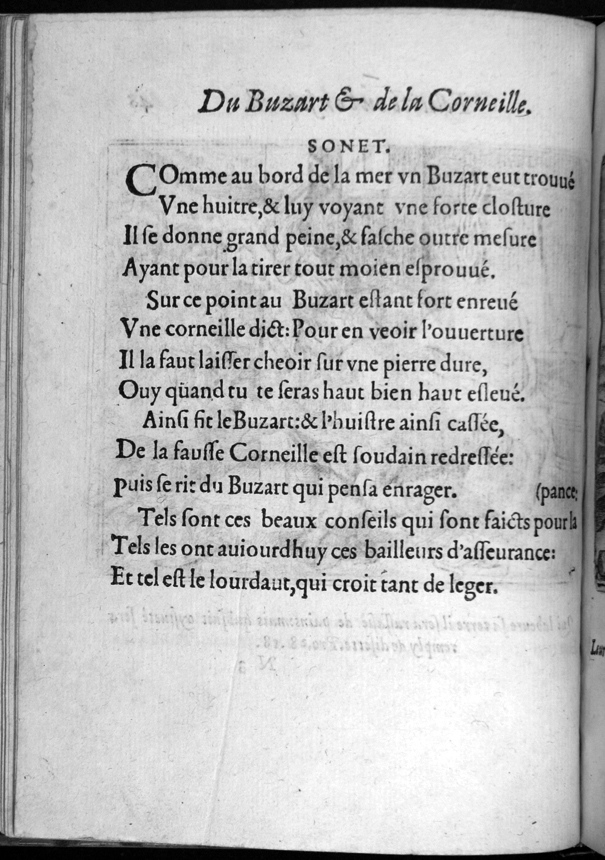 Du Buzart & de la Corneille.
SONET.
COmme au bord de la mer vn Buzart eut trouué
Vne huitre, & luy voyant vne forte closture
Il se donne grand peine, & fasche outre mesure
Ayant pour la tirer tout moien esprouué.
Sur ce point au Buzart estant fort enreué
Vne corneille dict: Pour en veoir l'ouuerture
Il la faut laisser cheoir sur vne pierre dure,
Ouy quand tu te seras haut bien haut esleué.
Ainsi fit le Buzart: & l'huistre ainsi cassée,
De la fausse Corneille est soudain redressée:
Puis se rit du Buzart qui pensa enrager. (pance;
Tels sont ces beaux conseils qui sont faicts pour la
Tels les ont auiourdhuy ces bailleurs d'asseurance:
Et tel est le lourdaut, qui croit tant de leger.